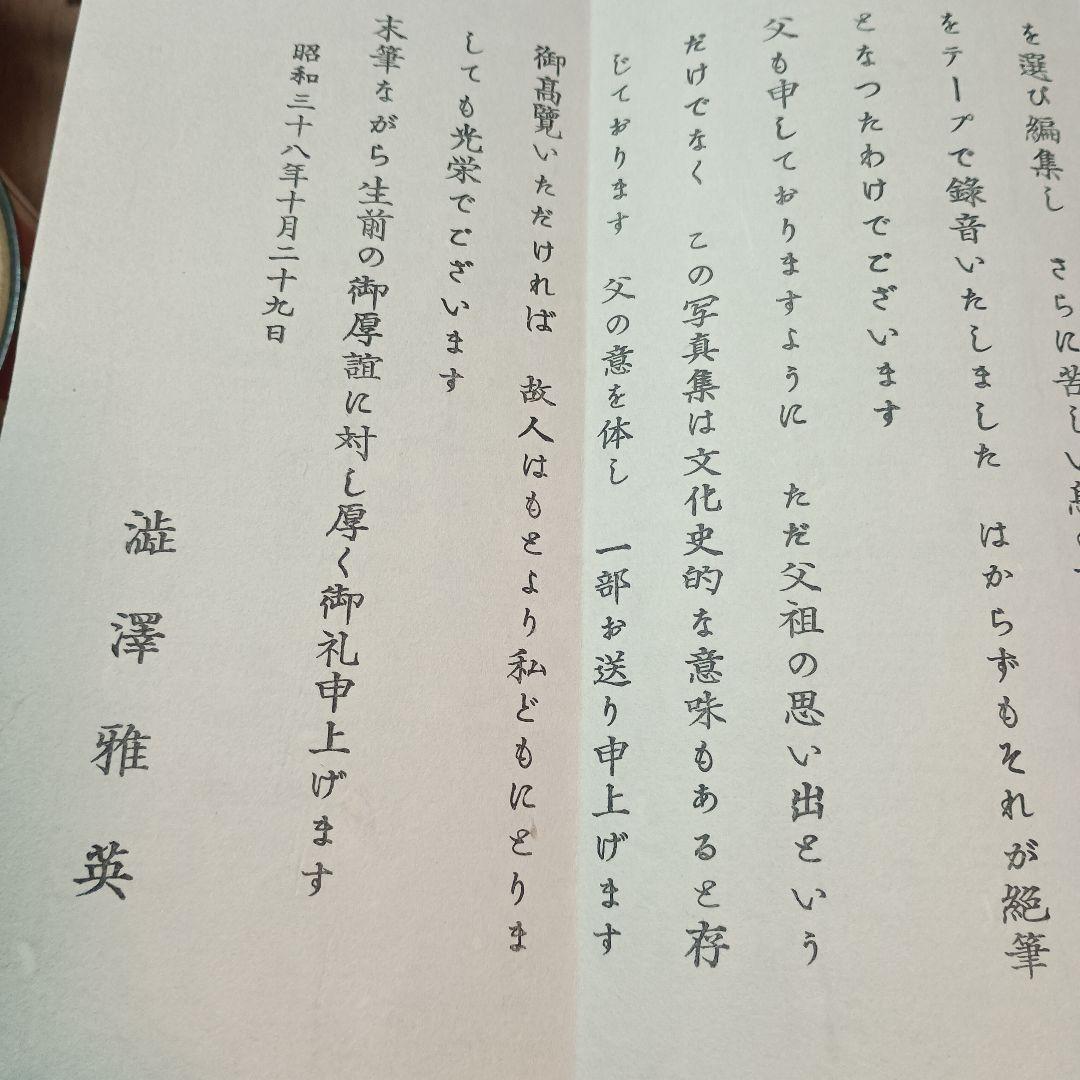 を選び編集し　さらに苦しい
をテープで錄音いたしました　はからずもそれが絕筆
となつたわけでございます
父も申しておりますように　ただ父祖の思い出という
だけでなく　この写真集は文化史的な意味もあると存
じております　父の意を体し　一部お送り申上げます
御高覽いただければ　故人はもとより私どもにとりま
しても光栄でございます
末筆ながら生前の御厚誼に対し厚く御礼申上げます
昭和三十八年十月二十九日
澁澤雅英